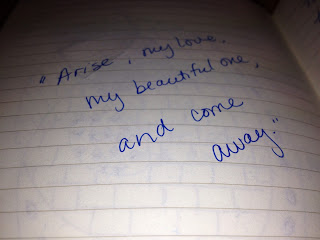 "Arise, my love,
my beautiful one,
and come
away."